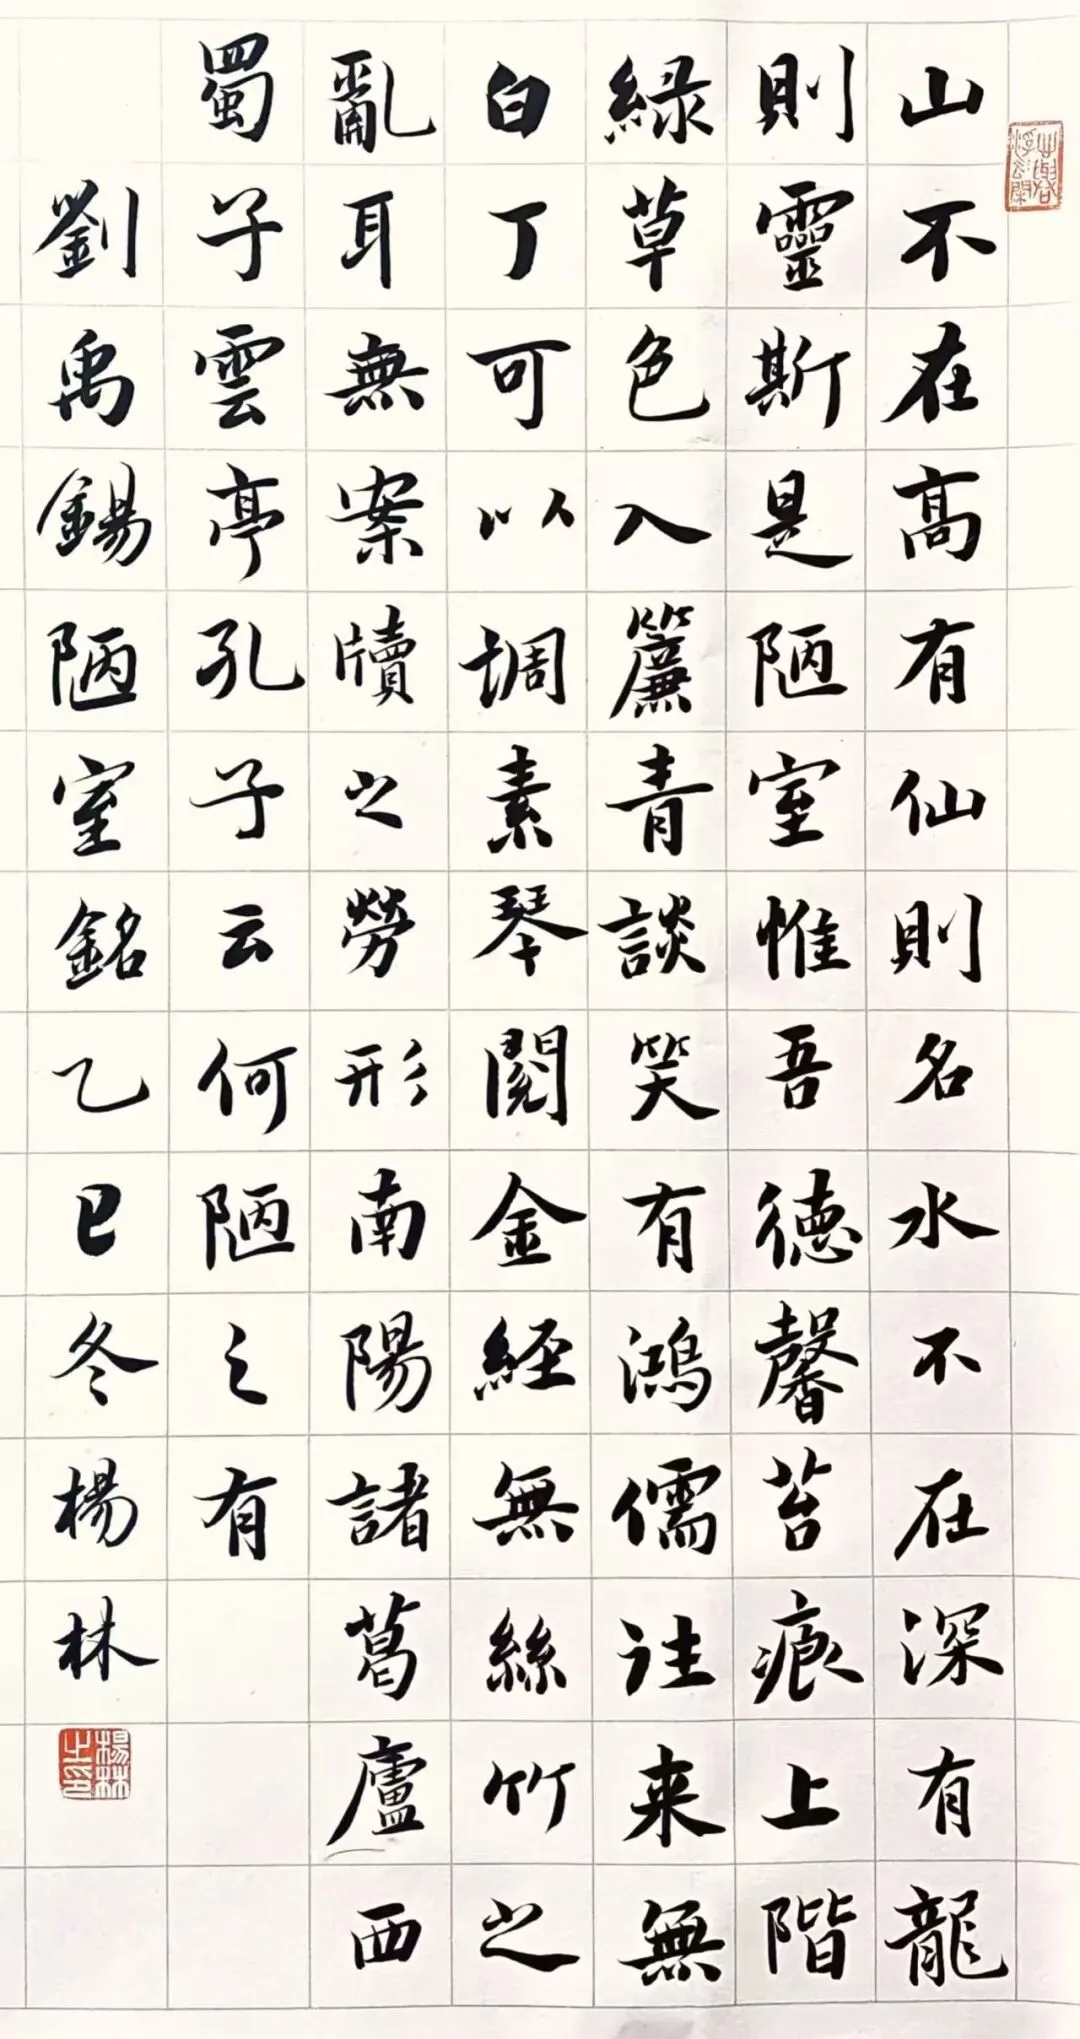 山不在高有仙則名水不在深有龍
則靈斯是陋室惟吾德馨苔痕上階
緑草色入簾青談笑有鴻儒往来無
白丁可以調素琴閱金經無絲竹之
亂耳無案牘之勞形南陽諸葛廬西
蜀子雲亭孔子云何陋之有
劉禹錫陋室銘乙巳冬楊林
楊林之印